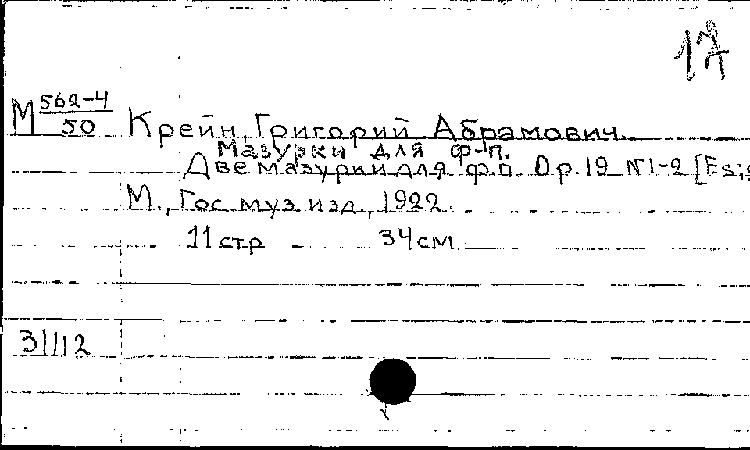 17
М 562-4
50
Крейн, Григорий Абрамович.
Мазурки для ф-п.
Две мазурки для ф.п. Op. 19 N 1-2 [Es;
М., Гос. муз. изд., 1922.
11 стр - 34 см
31112